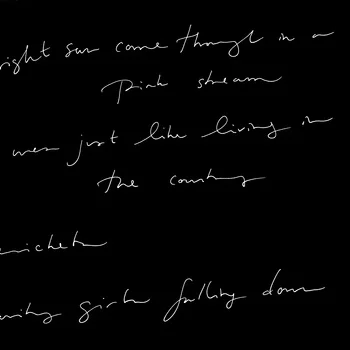 right sun come through in a
pink stream
was just like living in
the country
girls falling down